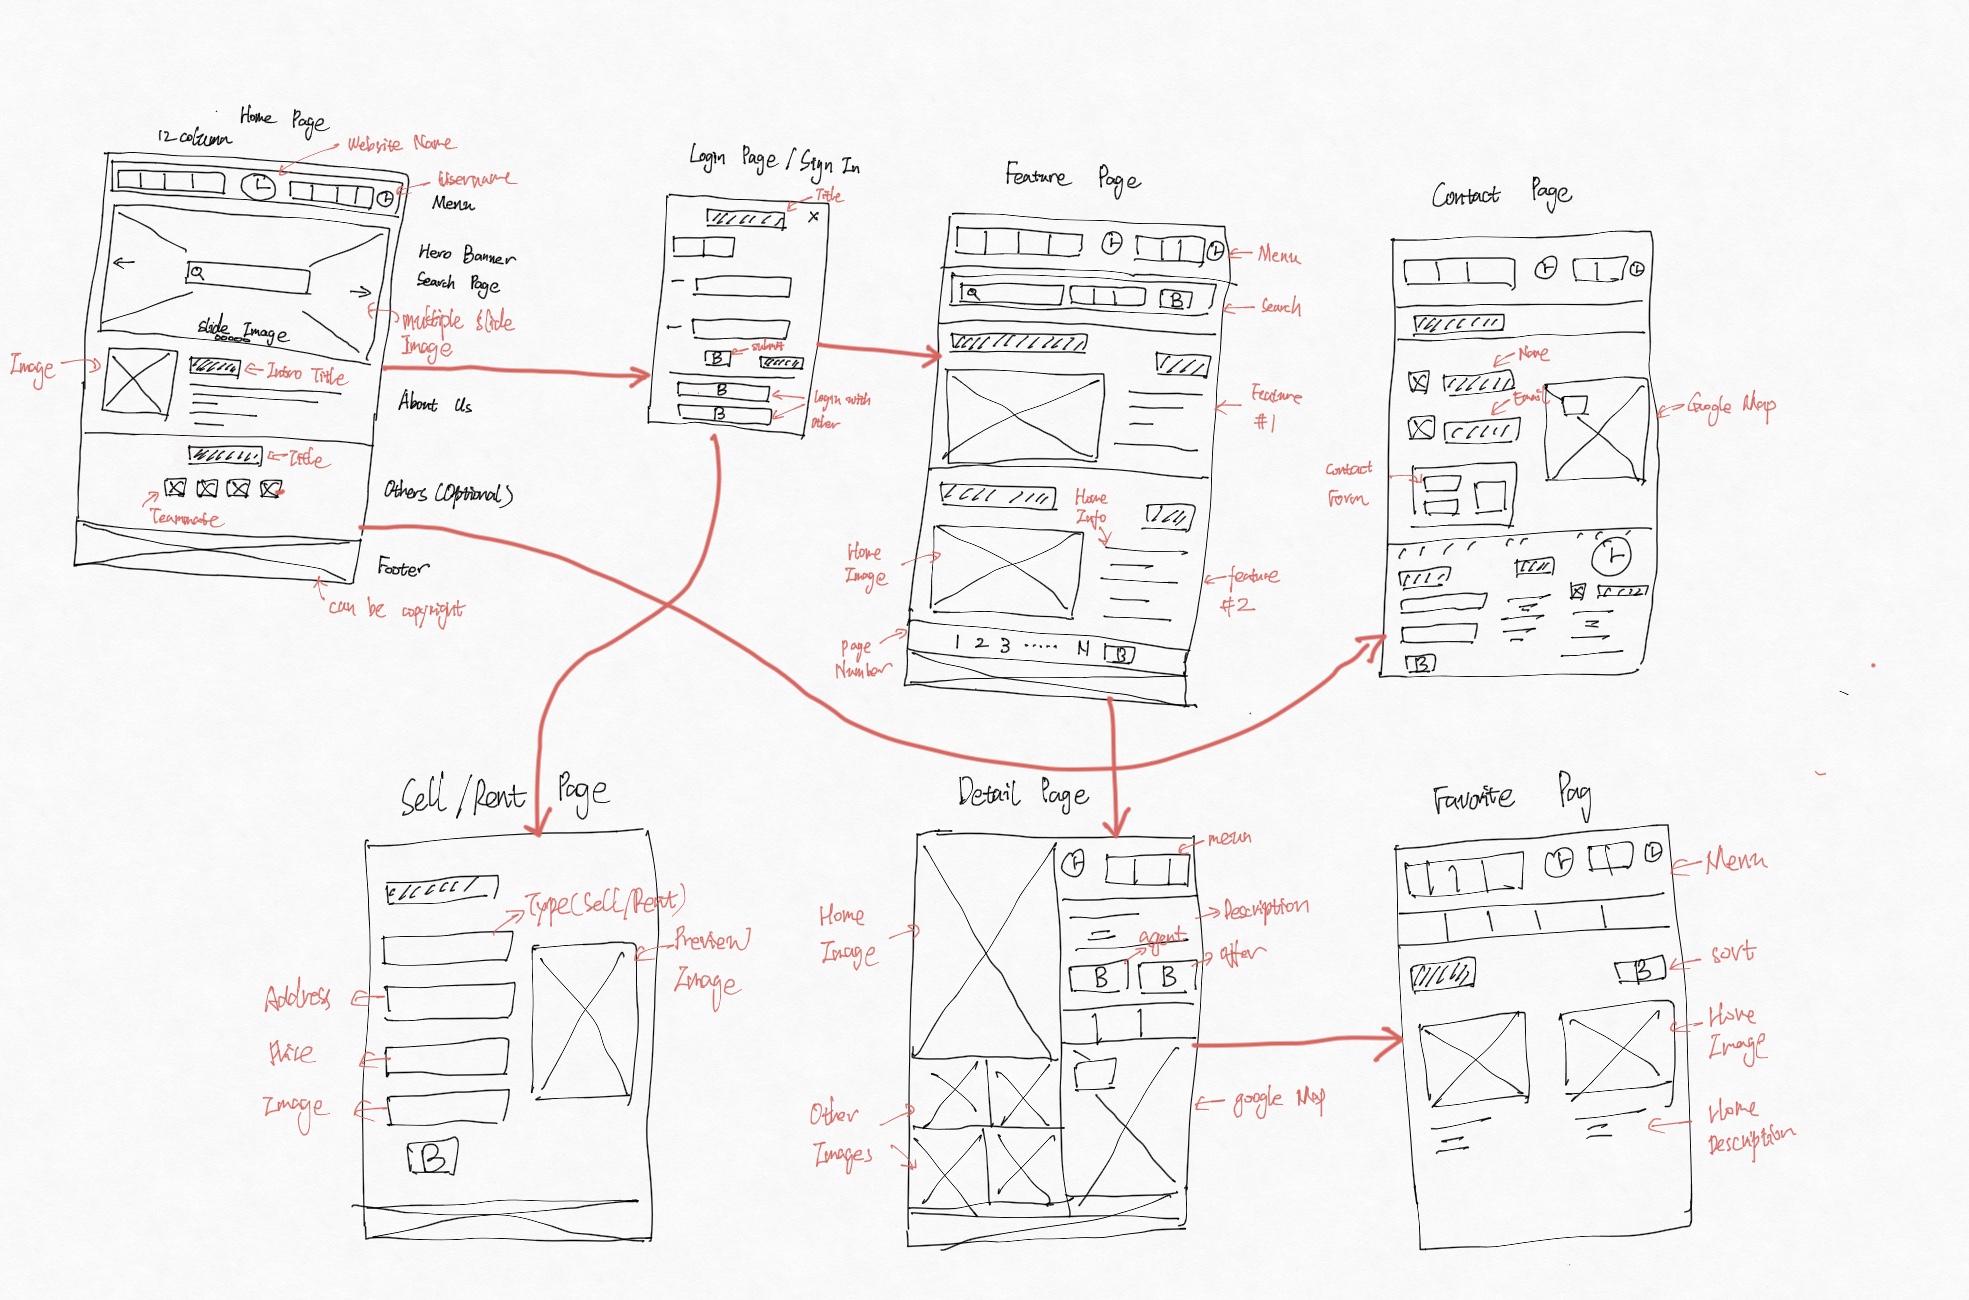 Home Page
12 column
Website Name
Username
Menu
Hero Banner
Search Page
Slide Image
multiple slide
Image
Image
Intro Title
About Us
Title
Teammate
Others (Optional)
Footer
can be copyright
Login Page / Sign In
Title
x
B
submit
B
B
Login with
other
Feature Page
Menu
B
Search
Feature
#1
Home
Info
Home
Image
feature
#2
Page
Number
1 2 3 ..... N B
Contact Page
Name
Email
Google Map
Contact
Form
B
Sell/Rent Page
Type(Sell/Rent)
Preview
Image
Address
Price
Image
B
Detail Page
menu
Home
Image
Description
agent
offer
B
B
Other
Images
google Map
Favorite Pag
Menu
B
sort
Home
Image
Home
Description